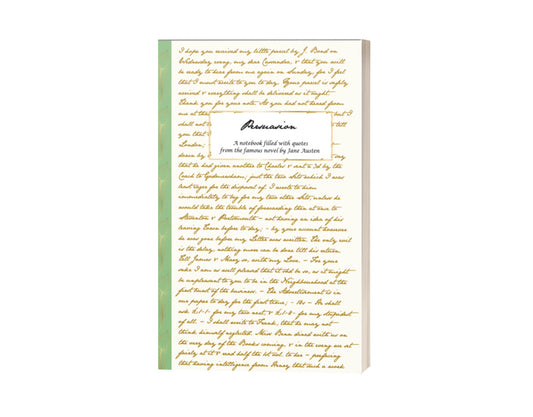 I hope you received my little parcel by J. Bond on
Wednesday eveng, my dear Cassandra, & that you will
be ready to hear from me again on Sunday, for I feel
that I must write to you to day. Your parcel is safely
arrived & everything shall be delivered as it ought.
Thank you for your note. As you had not heard from
me at that
but I
shall not
tell
you that
London;
Persuasion
A notebook filled with quotes
from the famous novel by Jane Austen
drawn by
any
that he had given another to Charles & sent a 3d by the
Coach to Godmersham; just the two Sets which I was
least eager for the disposal of. I wrote to him
immediately to beg for my two other Sets, unless he
would take the trouble of forwarding them at once to
Steventon & Portsmouth - not having an idea of his
leaving Town before to day; - by your account however
he was gone before my Letter was written. The only evil
is the delay, nothing more can be done till his return.
Tell James & Mary so, with my Love. - For your
sake I am as well pleased that it shd be so, as it might
be unpleasant to you to be in the Neighbourhood at the
first burst of the business. - The Advertisement is in
our paper to day for the first time; - 18s - He shall
ask £1-1- for my two next, & £1-8- for my stupidest
of all. - I shall write to Frank, that he may not
think himself neglected. Miss Benn dined with us on
the very day of the Books coming, & in the eveng we set
fairly at it & read half the 1st vol. to her - prefacing
that having intelligence from Henry that such a work